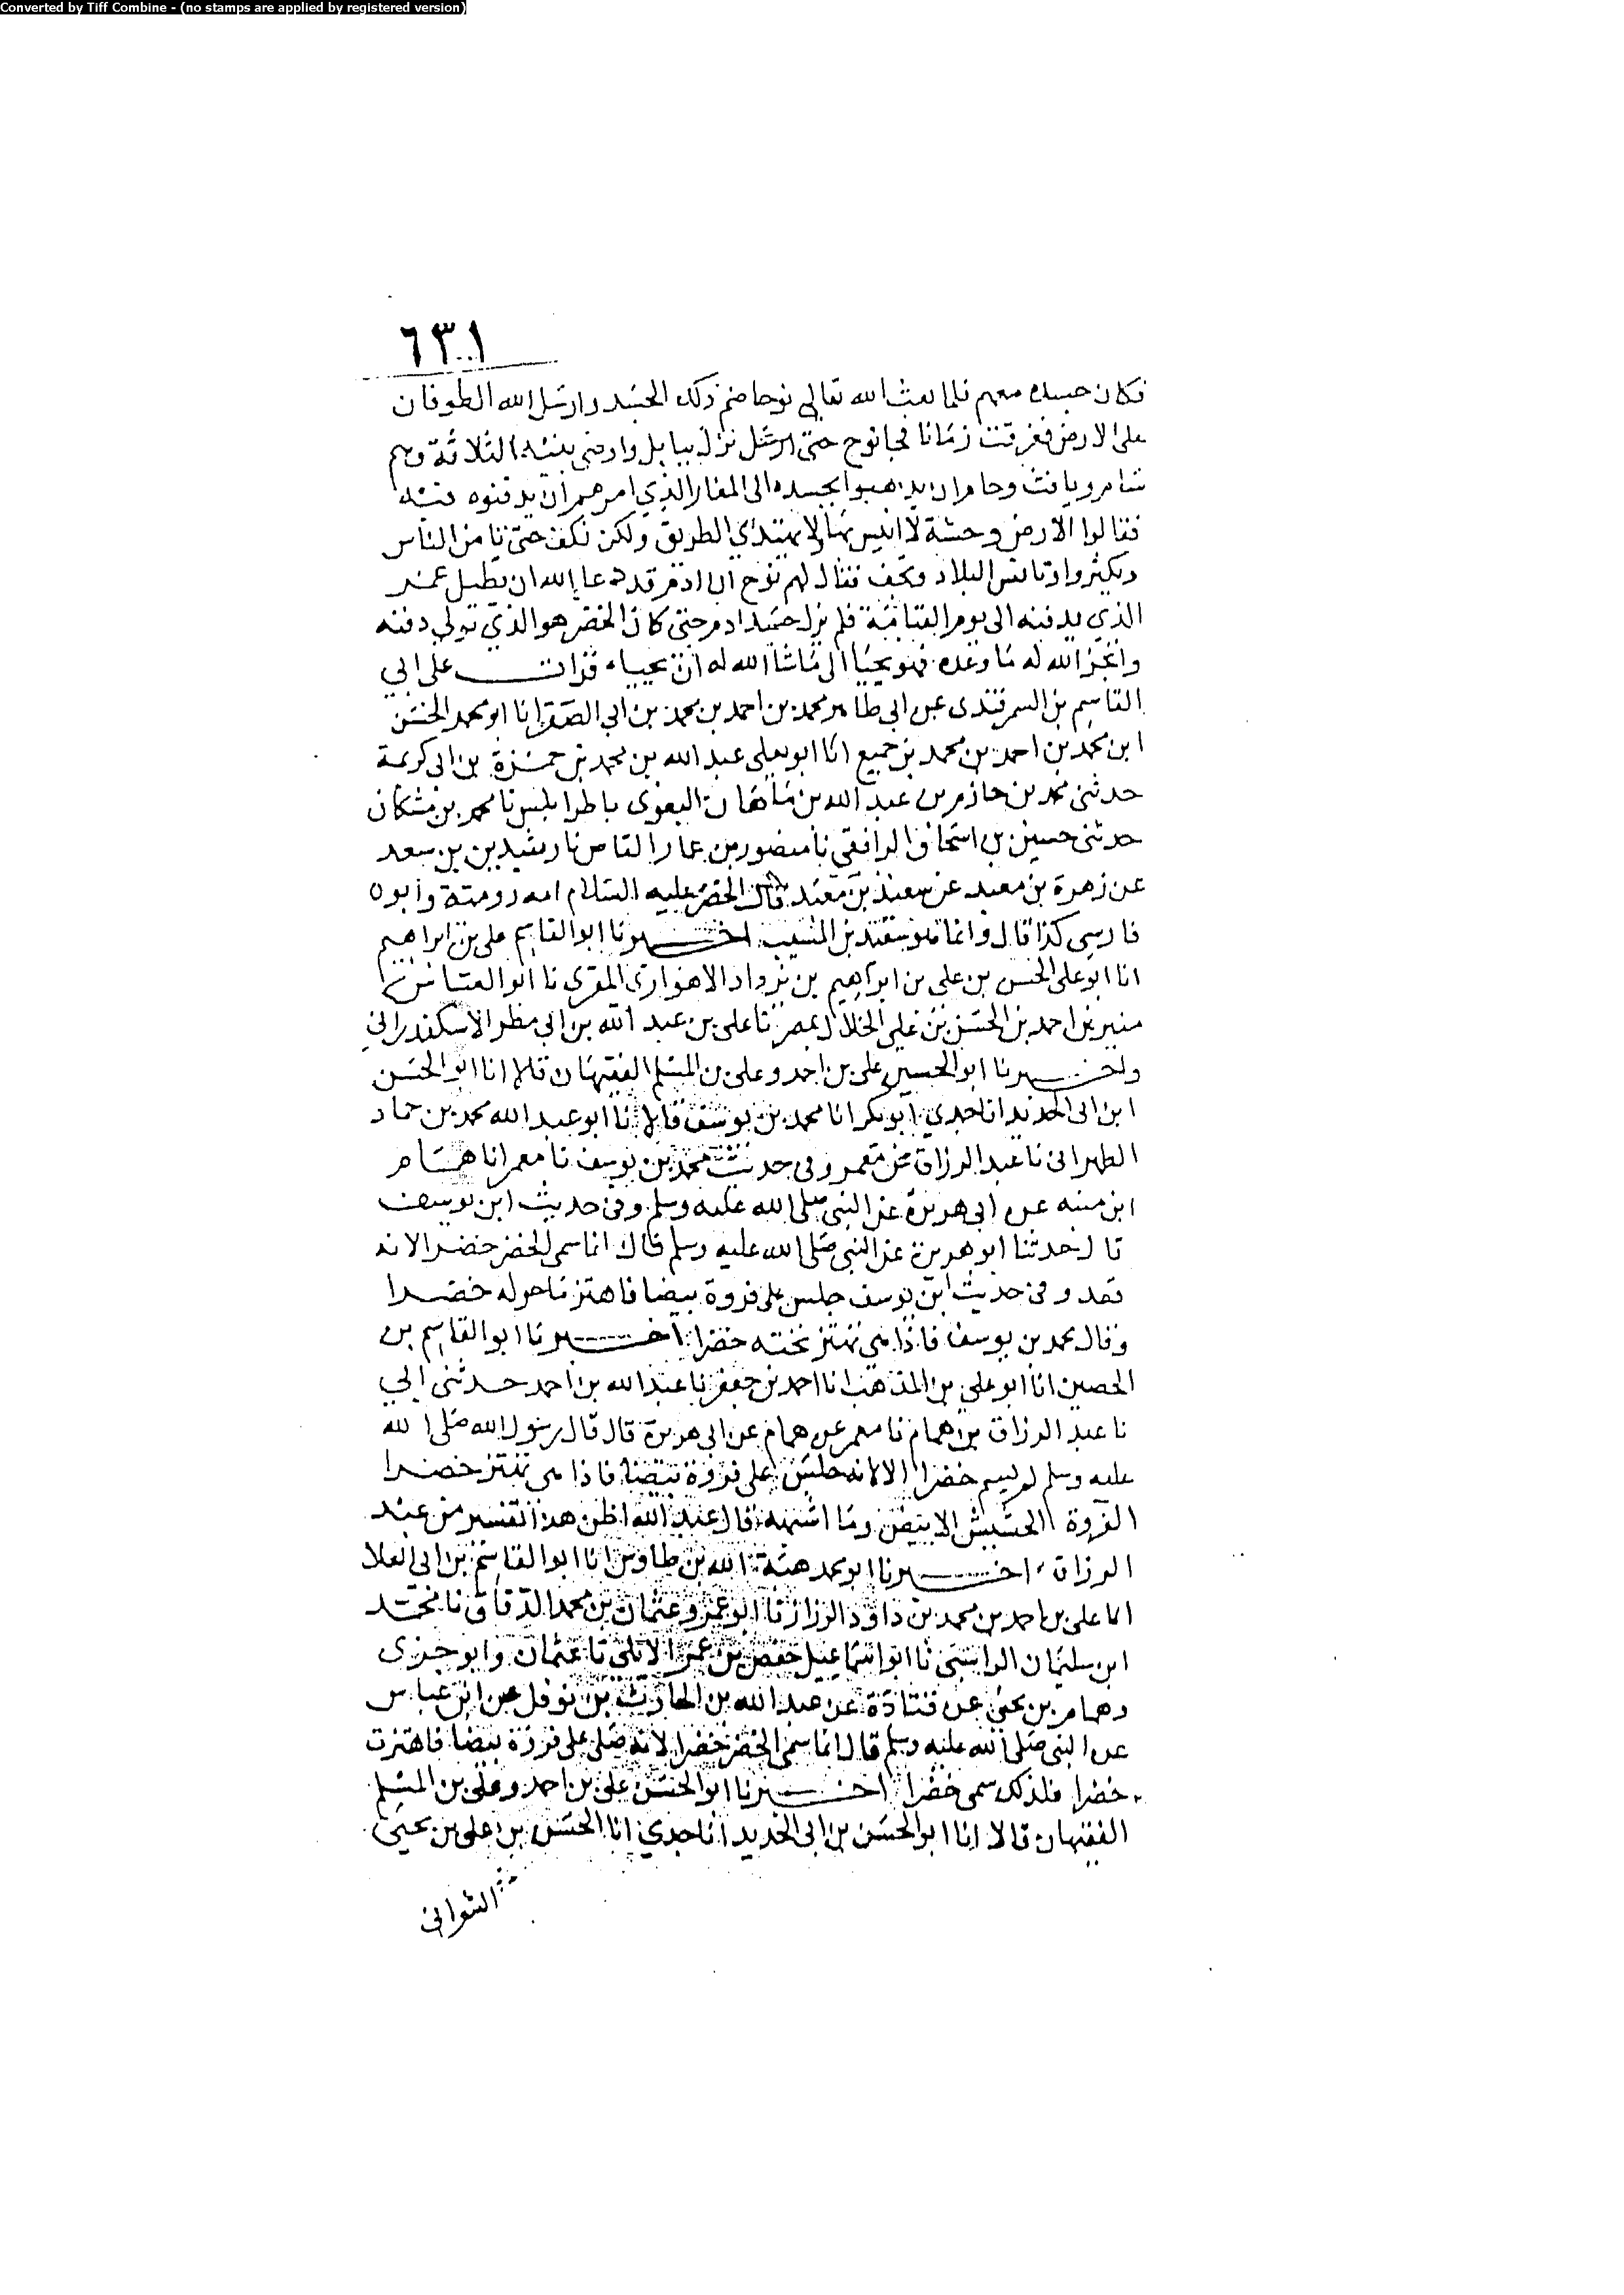 Converted by Tiff Combine - (no stamps are applied by registered version)
٦٣١
فكان جسده معهم فلما بعث الله تعالى نوحا ضم ذلك الجسد وارسل الله الطوفان
على الارض فغرقت زمانا فجا نوح حتى نزل ببابل واوصى بنيه الثلاثة وهم
سام ويافث وحام ان يذهبوا بجسده الى المغار الذي امرهم ان يدفنوه فيه
فقالوا الارض وحشة لا انيس بها ولا نهتدي الطريق ولكن نكف حتى يامن الناس
ويكثروا وتانس البلاد وتجف فقال لهم نوح ان ادم قد دعا الله ان يطيل عمر
الذي يدفنه الى يوم القيامة فلم يزل جسد ادم حتى كان الخضر هو الذي تولى دفنه
وانجز الله له ما وعده فهو يحيا الى ما شا الله له ان يحيا قرات على ابي
القاسم بن السمرقندي عن ابي طاهر محمد بن احمد بن محمد بن ابي الصقر انا ابو محمد الحسن
ابن محمد بن احمد بن محمد بن جميع انا ابو يعلى عبد الله بن محمد بن حمزة بن ابي كريمة
حدثني محمد بن حازم بن عبد الله بن ماهان البغوى باطرابلس نا محمد بن مشكان
حدثني حسين بن اسحاق الرافقي نا منصور بن عمار القاص نا رشيدين بن سعد
عن زهرة بن معبد عن سعيد بن معبد قال الخضر عليه السلام امه رومية وابوه
فارسي كذا قال وانما هو سعيد بن المسيب اخبرنا ابو القاسم علي بن ابراهيم
انا ابو علي الحسن بن علي بن ابراهيم بن يزداد الاهوازي المقرى نا ابو العباس
منير بن احمد بن الحسن بن علي الخلال بمصر نا علي بن عبد الله بن ابي مطر الاسكندراني
واخبرنا ابو الحسين علي بن احمد وعلي بن المسلم الفقيهان قالا انا ابو الحسن
ابن ابي الحديد انا جدي ابو بكر انا محمد بن يوسف قالا نا ابو عبد الله محمد بن حماد
الطهراني نا عبد الرزاق عن معمر وفي حديث محمد بن يوسف نا معمر انا همام
ابن منبه عن ابي هريرة عن النبي صلى الله عليه وسلم وفي حديث ابن يوسف
قال حدثنا ابو هريرة عن النبي صلى الله عليه وسلم قال انما سمى الخضر خضرا لانه
قعد وفي حديث ابن يوسف جلس على فروة بيضا فاهتز ما حوله خضرا
وقال محمد بن يوسف فاذا هي تهتز تحته خضرا اخبرنا ابو القاسم بن
الحصين انا ابو علي بن المذهب انا احمد بن جعفر نا عبد الله بن احمد حدثني ابي
نا عبد الرزاق بن همام نا معمر عن همام عن ابي هريرة قال قال رسول الله صلى الله
عليه وسلم لم يسم خضرا الا لانه جلس على فروة بيضا فاذا هي تهتز خضرا
الفروة الحشيش الابيض وما اشبهه قال عبد الله اظن هذا تفسير من عبد
الرزاق اخبرنا ابو محمد هبة الله بن طاوس انا ابو القاسم بن ابي العلا
انا علي بن احمد بن محمد بن داود الرزاز نا ابو عمرو عثمان بن محمد الدقاق نا محمد
ابن سليمان الواسطي نا ابو اسماعيل حفص بن عمر الابلي نا عثمان وابو جزى
وهمام بن يحيى عن قتادة عن عبد الله بن الحارث بن نوفل عن ابن عباس
عن النبي صلى الله عليه وسلم قال انما سمى الخضر خضرا لانه صلى على فروة بيضا فاهتزت
خضرا فلذلك سمى خضرا اخبرنا ابو الحسن علي بن احمد وعلي بن المسلم
الفقيهان قالا انا ابو الحسن بن ابي الحديد انا جدي انا الحسن بن علي بن يحيى